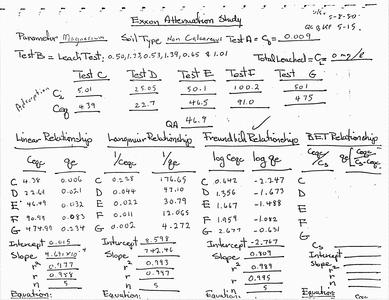 Exxon Attenuation Study
5-8-80
5-15
Parameter Magnesium Soil Type Non Calcareous Test A = Cβ = 0.009
Test B = Leach Test; 0.50, 1.32, 0.53, 1.39, 0.65 & 1.01 Total Leached = C = 0 mg/l
Test C Test D Test E Test F Test G
Adsorption
C 5.01 25.05 50.1 100.2 501
Ceq 4.39 22.7 46.5 91.0 475
QA 46.9
Linear Relationship Langmuir Relationship Freundlich Relationship BET Relationship
Ceqc qe 1/Ceqc 1/qe log Ceqc log qe Ceqc/Cs
C 4.38 0.006 C 0.228 176.65 C 0.642 -2.247 C
D 22.61 0.021 D 0.044 47.10 D 1.356 -1.673 D
E 46.49 0.032 E 0.022 30.79 E 1.667 -1.488 E
F 90.99 0.083 F 0.011 12.065 F 1.959 -1.082 F
G 474.99 0.234 G 0.002 4.272 G 2.677 -0.631 G
Intercept 0.015 Intercept 8.598 Intercept -2.767 Cs
Slope Slope 742.46 Slope 0.809 Intercept
r² 0.977 r² 0.993 r² 0.989 Slope
r 0.988 r 0.997 r 0.995 r²
n 5 n 5 n 5 r
Equation: Equation: Equation: n